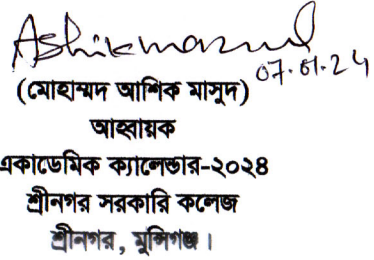 Ashikmasud
07.01.24
(মোহাম্মদ আশিক মাসুদ)
আহ্বায়ক
একাডেমিক ক্যালেন্ডার-২০২৪
শ্রীনগর সরকারি কলেজ
শ্রীনগর, মুন্সিগঞ্জ।